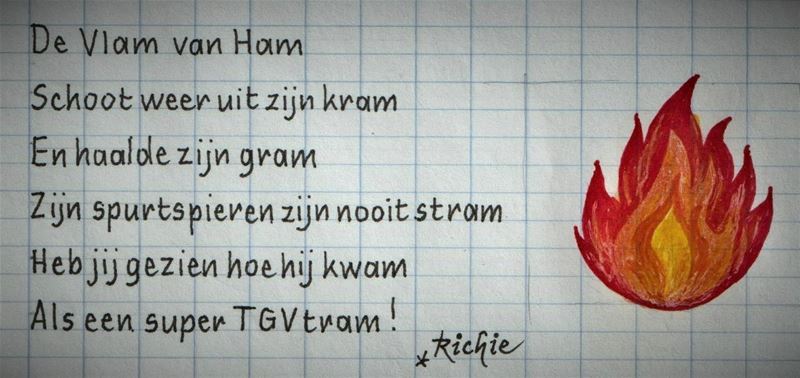 De Vlam van Ham
Schoot weer uit zijn kram
En haalde zijn gram
Zijn spurtspieren zijn nooit stram
Heb jij gezien hoe hij kwam
Als een super TGV tram!
*Richie